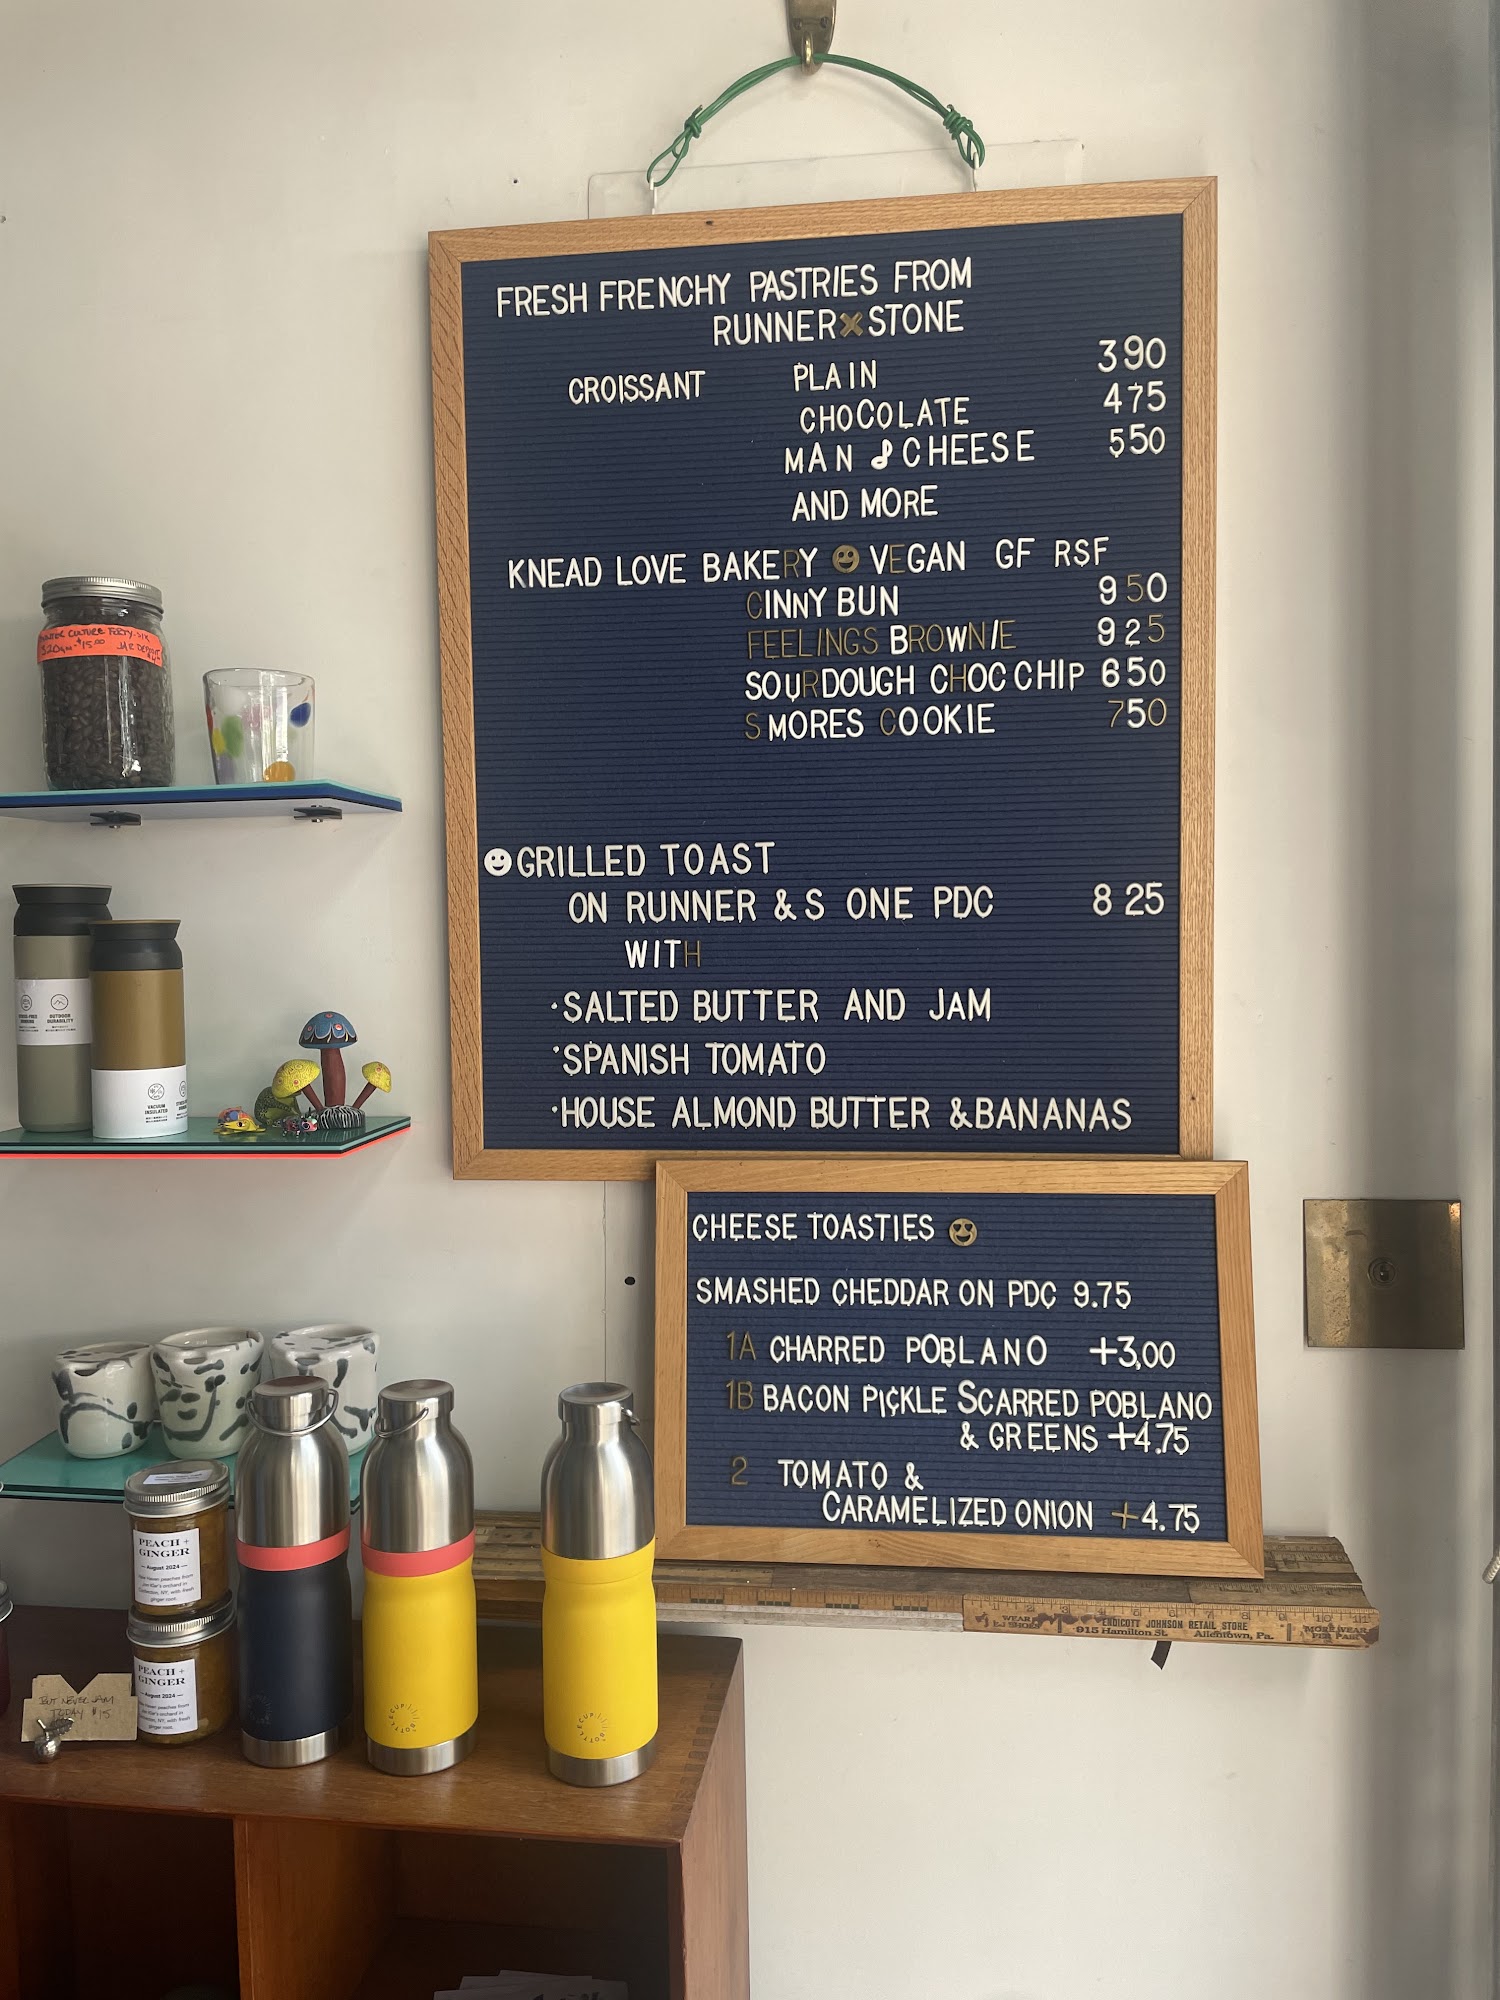 FRESH FRENCHY PASTRIES FROM
RUNNER STONE
CROISSANT PLAIN 390
CHOCOLATE 475
MAN CHEESE 550
AND MORE
KNEAD LOVE BAKERY VEGAN GF RSF
CINNY BUN 950
FEELINGS BROWNIE 925
SOURDOUGH CHOC CHIP 650
S MORES COOKIE 750
GRILLED TOAST
ON RUNNER & S ONE PDC 825
WITH
·SALTED BUTTER AND JAM
·SPANISH TOMATO
·HOUSE ALMOND BUTTER &BANANAS
CHEESE TOASTIES
SMASHED CHEDDAR ON PDC 9.75
1A CHARRED POBLANO +3,00
1B BACON PICKLE SCARRED POBLANO
& GREENS +4.75
2 TOMATO &
CARAMELIZED ONION +4.75
CULTURE FORTY-SIX
320gm-$15.00 JAR DEPOSIT
OUTDOOR
DURABILITY
VACUUM
INSULATED
PEACH +
GINGER
— August 2024 —
PEACH +
GINGER
— August 2024 —
BUT NEVER JAM
TODAY $15
BOTTLECUP
BOTTLECUP
WEAR
E.J. SHOES
ENDICOTT JOHNSON RETAIL STORE
915 Hamilton St. Allentown, Pa.
MORE WEAR
PER PAIR